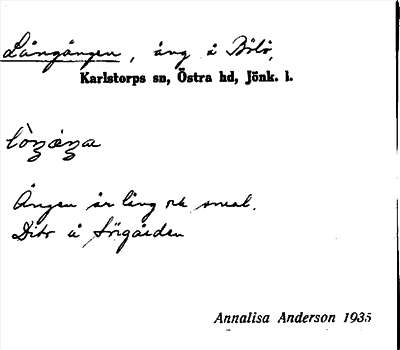 Långången, äng å Bölö,
Karlstorps sn, Östra hd, Jönk. l.
Ängen är lång ock smal.
Dito å Sörgården
Annalisa Anderson 1935